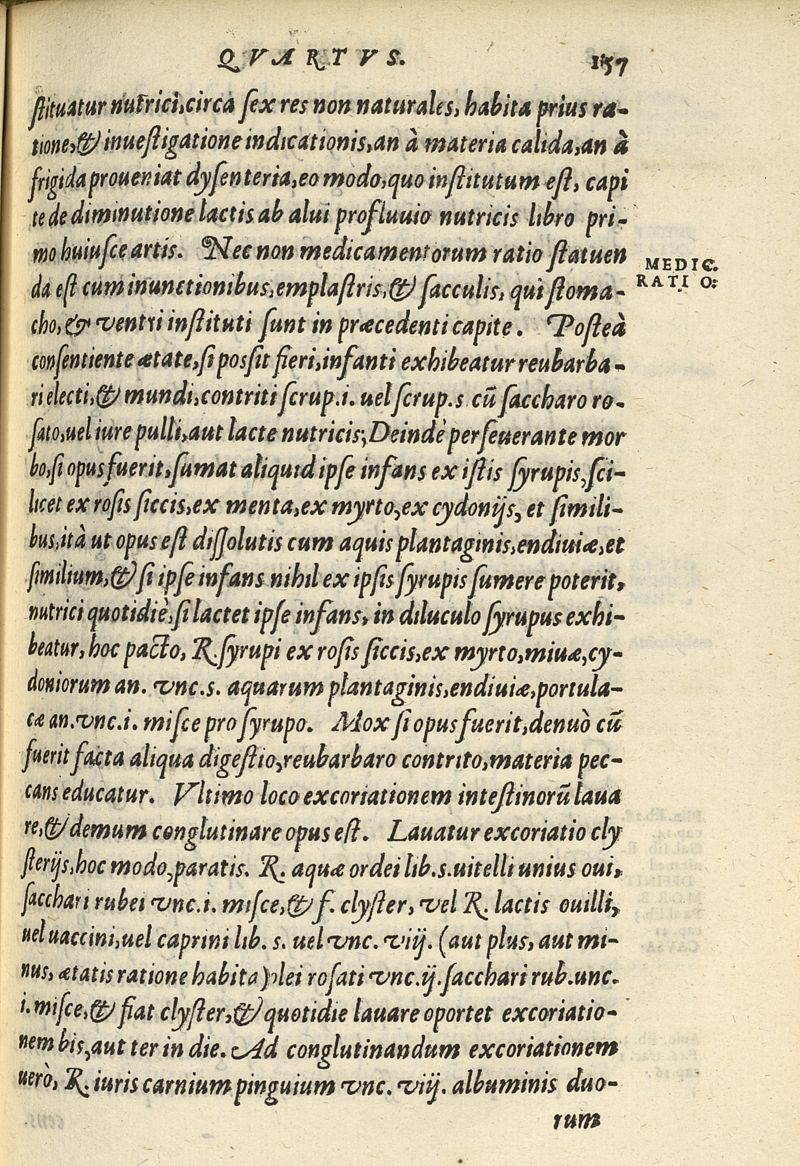 QVARTVS. 157
ſtituatur nutrici, circa ſex res non naturales, habita prius ra-
tione, & inueſtigatione indicationis, an à materia calida, an à
frigida proueniat dyſenteria, eo modo, quo inſtitutum eſt, capi
te de diminutione lactis ab alui profluuio nutricis libro pri-
mo huiuſce artis. Nec non medicamentorum ratio ſtatuen
MEDIC.
da eſt cum inunctionibus, emplaſtris, & ſacculis, qui ſtoma-
RATIO:
cho, & ventri inſtituti ſunt in præcedenti capite. Poſteà
conſentiente ætate, ſi poſsit fieri, infanti exhibeatur reubarba-
ri electi, & mundi, contriti ſcrup. i. uel ſcrup. s cũ ſaccharo ro-
ſato, uel iure pulli, aut lacte nutricis; Deindè perſeuerante mor
bo, ſi opus fuerit, ſumat aliquid ipſe infans ex iſtis ſyrupis, ſci-
licet ex roſis ſiccis, ex menta, ex myrto, ex cydonijs, et ſimili-
bus, ità ut opus eſt diſſolutis cum aquis plantaginis, endiuiæ, et
ſimilium, & ſi ipſe infans nihil ex ipſis ſyrupis ſumere poterit,
nutrici quotidiè, ſi lactet ipſe infans, in diluculo ſyrupus exhi-
beatur, hoc pacto, ℞. ſyrupi ex roſis ſiccis, ex myrto, miuæ, cy-
doniorum an. vnc. s. aquarum plantaginis, endiuiæ, portula-
cæ an. vnc. i. miſce pro ſyrupo. Mox ſi opus fuerit, denuò cũ
fuerit facta aliqua digeſtio, reubarbaro contrito, materia pec-
cans educatur. Vltimo loco excoriationem inteſtinorũ laua
re, & demum conglutinare opus eſt. Lauatur excoriatio cly
ſterijs, hoc modo, paratis. ℞. aquæ ordei lib. s. uitelli unius oui,
ſacchari rubei vnc. i. miſce, & f. clyſter, vel ℞. lactis ouilli,
uel uaccini, uel caprini lib. s. uel vnc. viij. (aut plus, aut mi-
nus, ætatis ratione habita) olei roſati vnc. ij. ſacchari rub. unc.
i. miſce, & fiat clyſter, & quotidie lauare oportet excoriatio-
nem bis, aut ter in die. Ad conglutinandum excoriationem
uerò, ℞. iuris carnium pinguium vnc. viij. albuminis duo-
rum